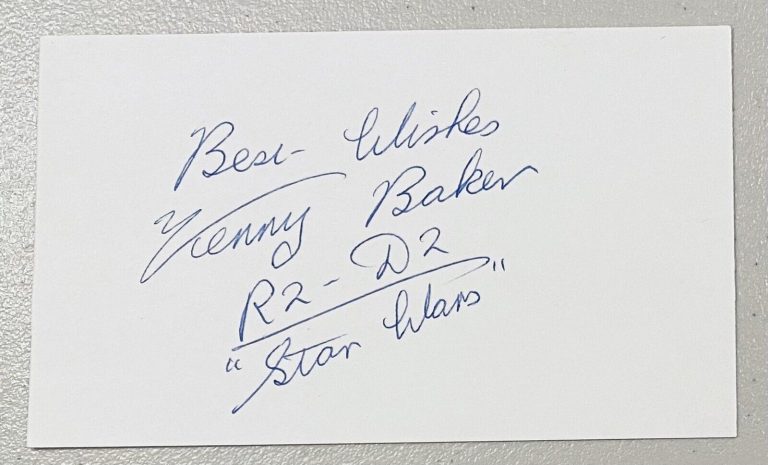 Best Wishes
Kenny Baker
R2-D2
"Star Wars"